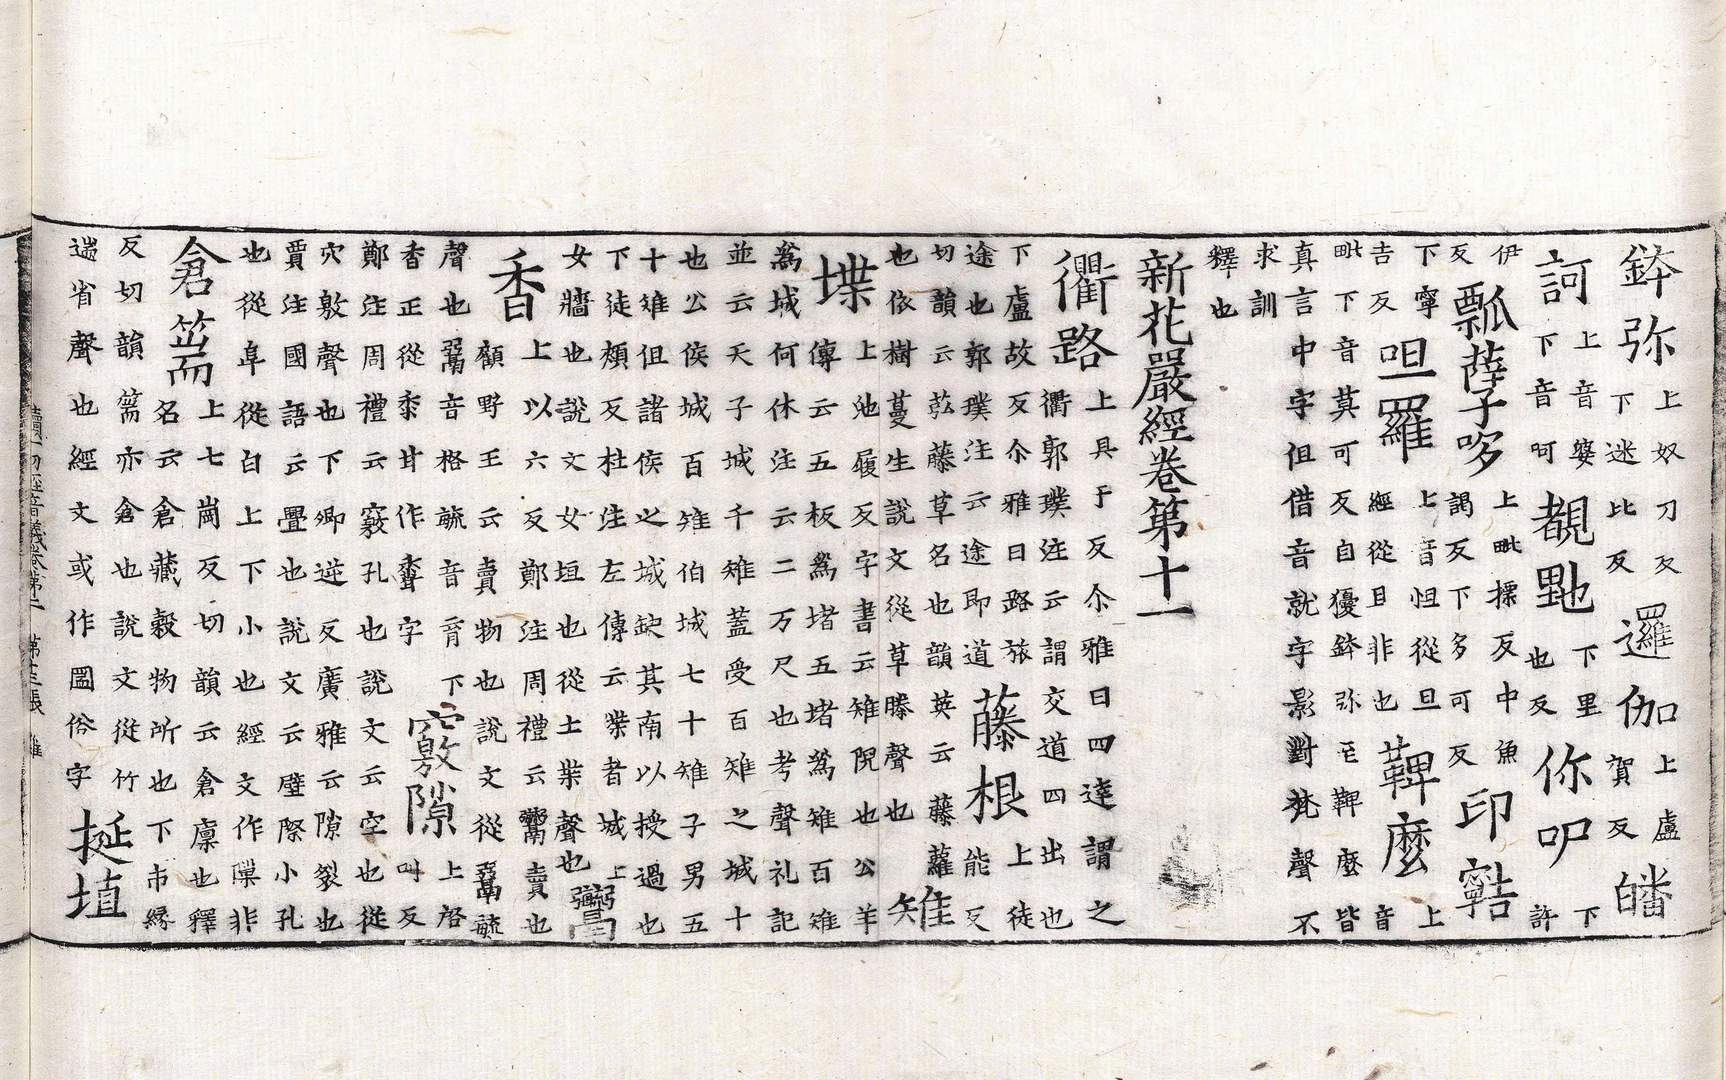 鉢弥上奴刀反下迷比反邏伽上盧賀反皤
訶上音婆下音呵覩㽘下里也反你吚下許
伊反瓢薩哆上毗摽反中魚謁反下多可反印
下寧吉反呾羅上音怛從旦經從目非也鞞麼上音
毗下音莫可反自獶鉢弥至鞞麼皆
真言中字但借音就字影對梵聲不
求訓
釋也
新花嚴經卷第十一
衢路上具于反尒雅曰四達謂之衢郭璞注云謂交道四出也
下盧故反尒雅曰路旅途也郭璞注云途即道藤根上徒能反
切韻云藤草名也韻英云藤蘿也依樹蔓生說文從草滕聲也雉
堞上池履反字書云雉陴也公羊傳云五板為堵五堵為雉百雉
為城何休注云二万尺也考聲礼記
並云天子城千雉蓋受百雉之城十
也公侯城百雉伯城七十雉子男五
十雉但諸侯之城缺其南以授過也
下徒頰反杜注左傳云堞者城上
女牆也說文女垣也從土枼聲也鬻
香上以六反鄭注周禮云鬻賣也顧野王云賣物也說文從䰜毓
聲也䰜音格毓音育下香正從黍甘作𪏽字竅隙上啓叫反
鄭注周禮云竅孔也說文云空也從
穴敫聲也下卿逆反廣雅云隙裂也
賈注國語云舋也說文云壁際小孔
也從阜從白上下小也經文作𨻶非
倉篅上七崗反切韻云倉廩也釋名云倉藏穀物所也下市緣
反切韻篅亦倉也說文從竹
耑省聲也經文或作圌俗字挻埴
續一切經音義卷第二 第十三張 雞